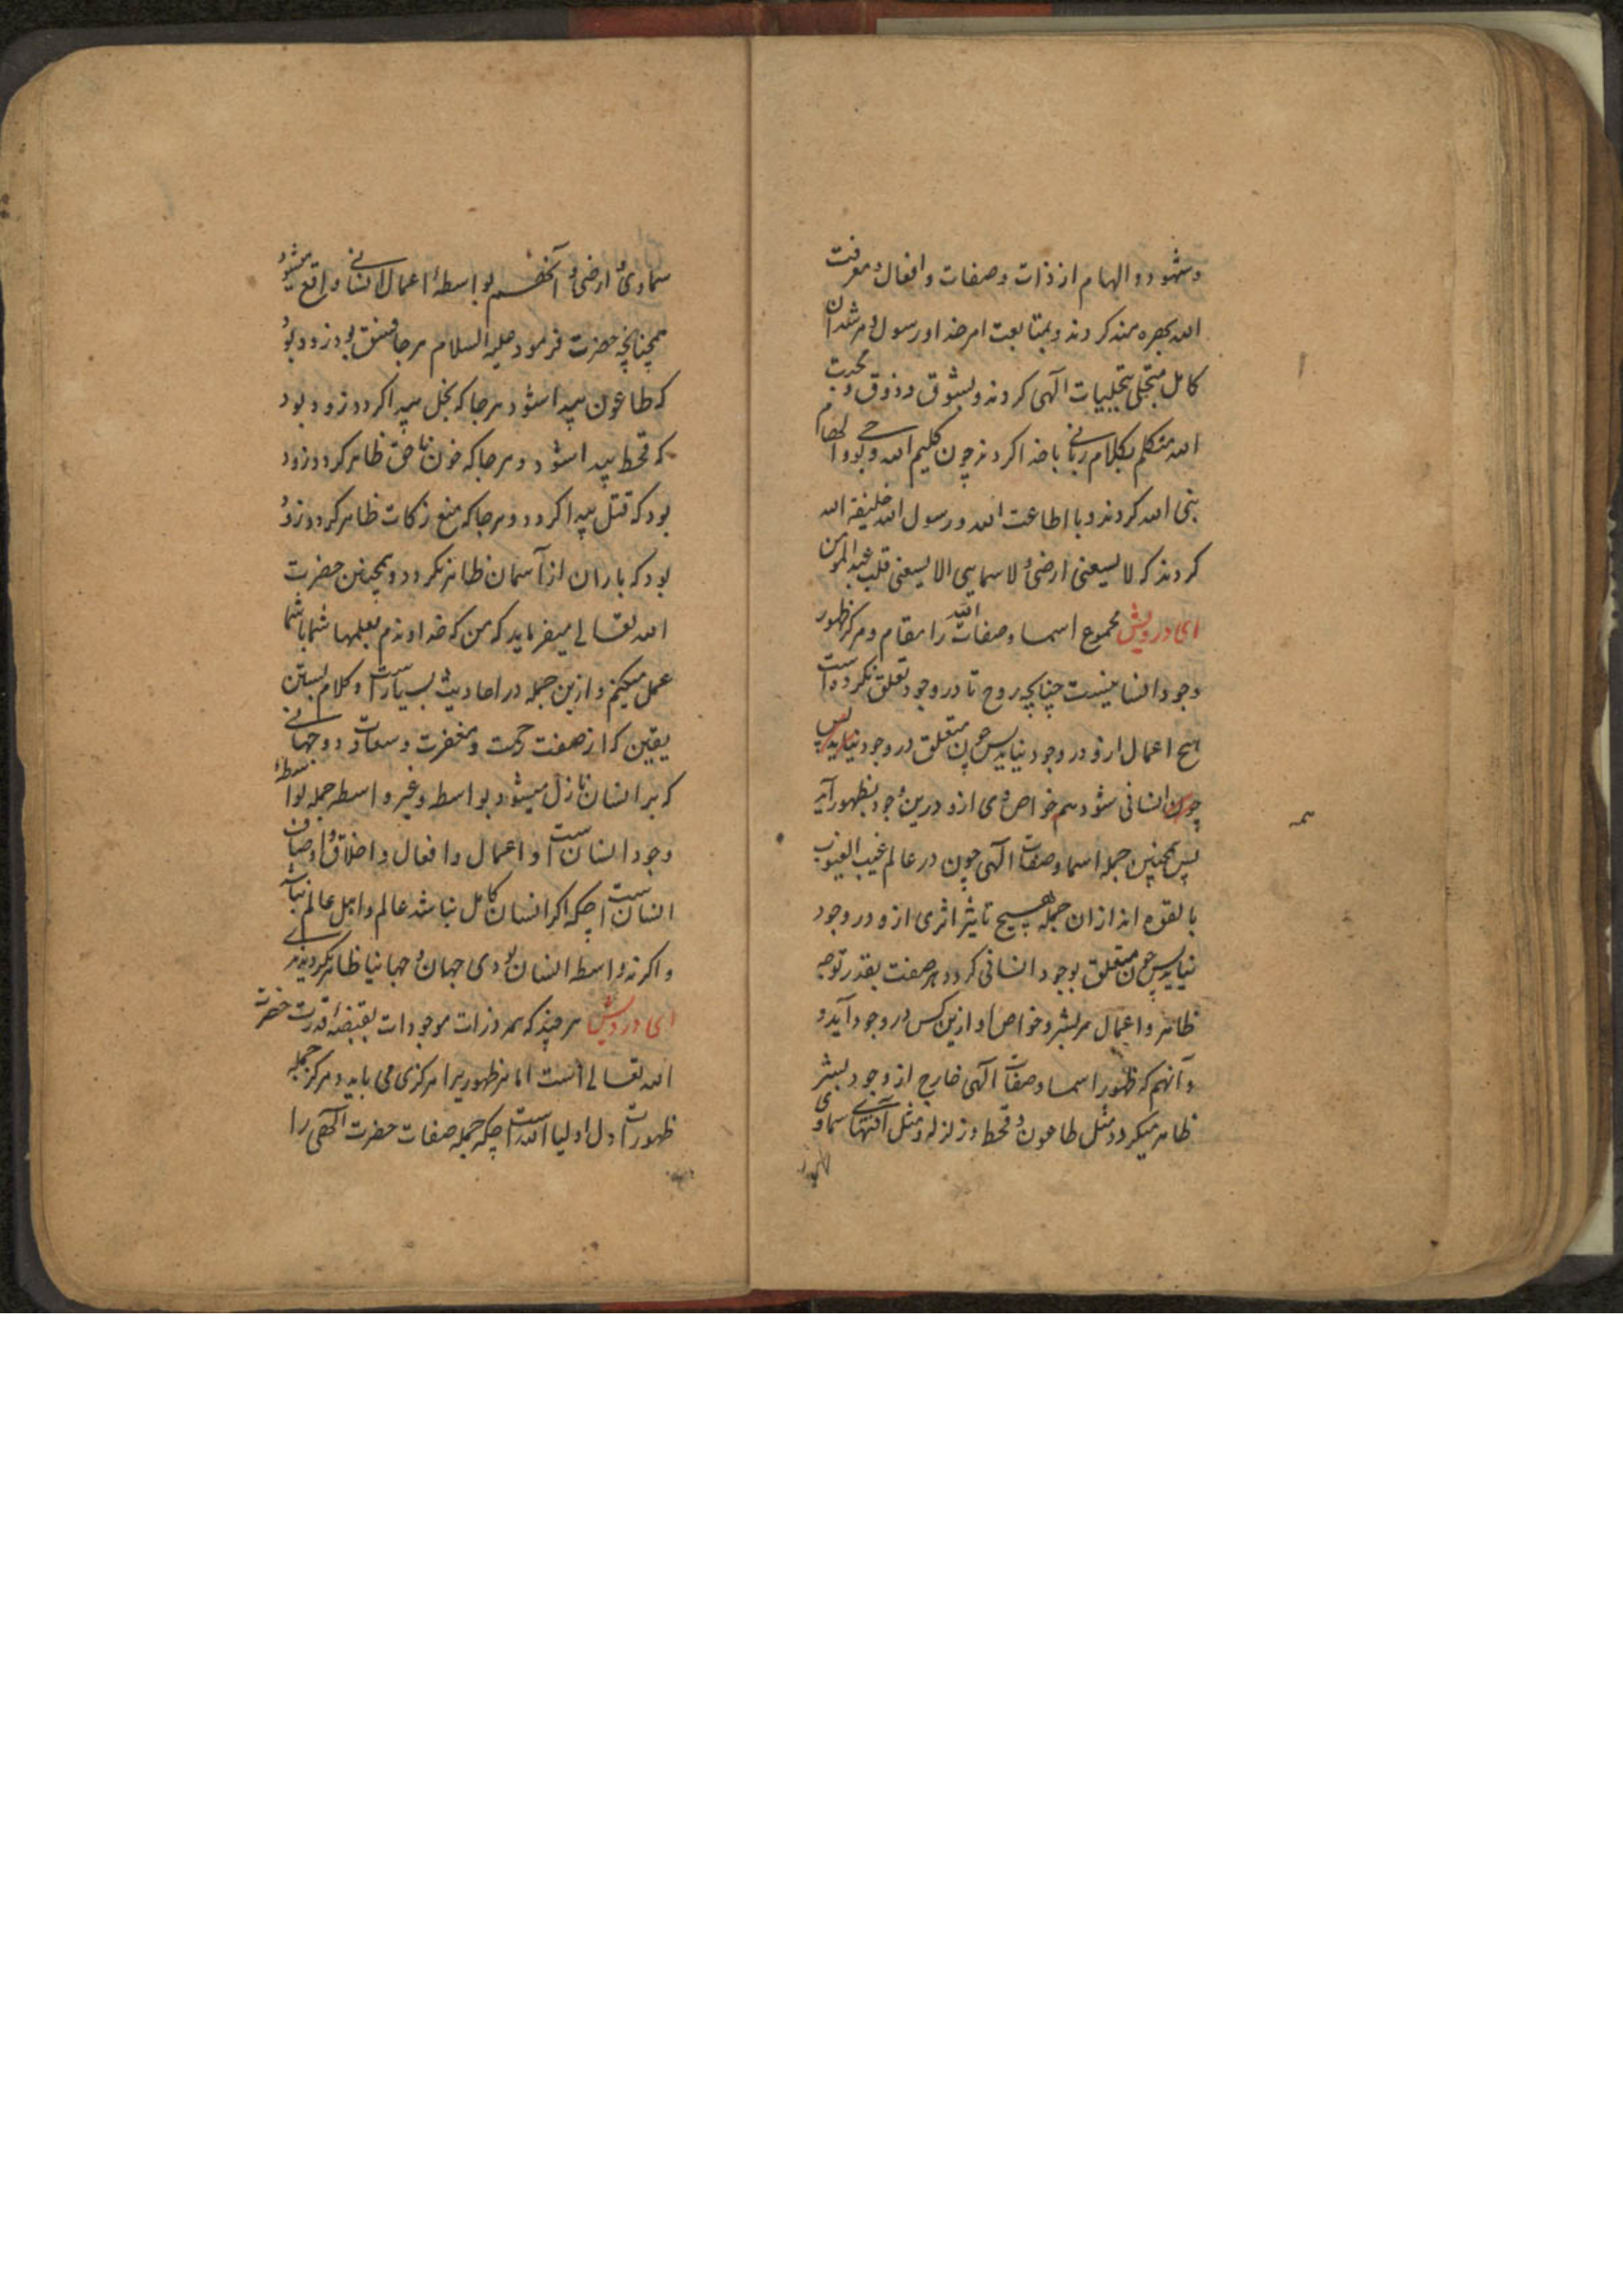 و شهود و الهام از ذات و صفات و افعال و معرفت
الله بهره مند کردند و بمتابعت امر خدا و رسول و مرشدان
کامل متجلی بتجلیات الهی کردند و بشوق و ذوق و محبت
الله متکلم بکلام ربانی با خدا کردند چون کلیم الله و بوحی و الهام
نبی الله کردند و با اطاعت الله و رسول الله خلیفة الله
کردند که لا یسعنی ارضی و لا سمایی الا یسعنی قلب عبد المومن
ای درویش مجموع اسما و صفات الله را مقام و مرکز ظهور
وجود انسانیست چنانچه روح تا در وجود تعلق نکرده است
هیچ اعمال ازو در وجود نیاید پس چون متعلق در وجود
چون انسانی شود هم خواص وی ازو درین وجود بظهور آید
پس همچنین جمله اسما و صفات الهی چون در عالم غیب الغیوب
بالقوه اند از ان جمله هیچ تاثیر اثری ازو در وجود
نیاید پس چون متعلق بوجود انسانی کردد هر صفت بقدر توجه
ظاهر و اعمال هر بشر و خواص او ازین کس در وجود آید و
و آنهم که ظهور اسما و صفات الهی خارج از وجود بشر
ظاهر میکردد مثل طاعون و قحط و زلزله و مثل آفتهای سماوی
همه
سماوی و ارضی و بواسطهٔ اعمال انسانی واقع میشود
همچنانچه حضرت فرمود علیه السلام هر جا فسق بود زود بود
که طاعون پیدا شود و هر جا که بخل پیدا کردد زود بود
که قحط پیدا شود و هر جا که خون ناحق ظاهر کردد زود
بود که قتل پیدا کردد و هر جا که منع زکات ظاهر کردد زود
بود که باران از آسمان ظاهر نکردد و همچنین حضرت
الله تعالی میفرماید که من که خداوندم بعملها شما با شما
عمل میکنم و ازین جمله در احادیث بسیارست و کلام
یقین که از صفت رحمت و مغفرت و سعادت دو جهانی
که بر انسان نازل میشود بواسطه و غیر واسطه جمله بواسطهٔ
وجود انسانست و اعمال و افعال و اخلاق و اوصاف
انسانست چکه اکر انسان کامل نباشد عالم و اهل عالم نباشد
و اکر نه واسطه انسان بودی جهان و جهانیا ظاهر نکردیدی
ای درویش هر چند که همه ذرات موجودات بقبضه قدرت حضرت
الله تعالی است اما هر ظهور را مرکزی می باید و مرکز جمله
ظهورات دل اولیا الله است چکه جمله صفات حضرت الهی را